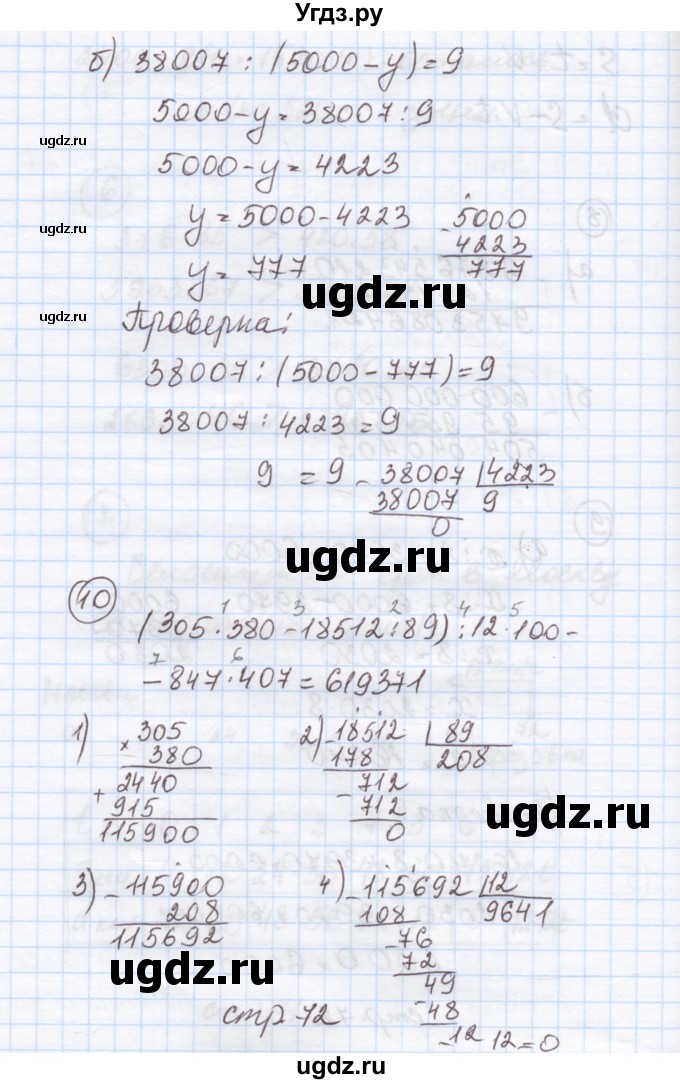 Угдз.ру
б) 38007 : (5000-y)=9
5000-y=38007:9
ugdz.ru
5000-y=4223
y=5000-4223
- 5000
4223
777
ugdz.ru
y=777
ugdz.ru
ugdz.ru
Проверка:
38007:(5000-777)=9
38007:4223=9
9 = 9
- 38007 4223
38007 9
0
ugdz.ru
10
1 3 2 4 5
(305·380-18512:89):12·100-
7 6
-847·407=619371
1) 305
× 380
2440
+ 915
115900
2) - 18512 89
178 208
- 712
712
0
ugdz.ru
3) - 115900
208
115692
4) - 115692 12
108 9641
- 76
72
49
- 48
- 12 12=0
ugdz.ru
ugdz.ru
стр 72
ugdz.ru